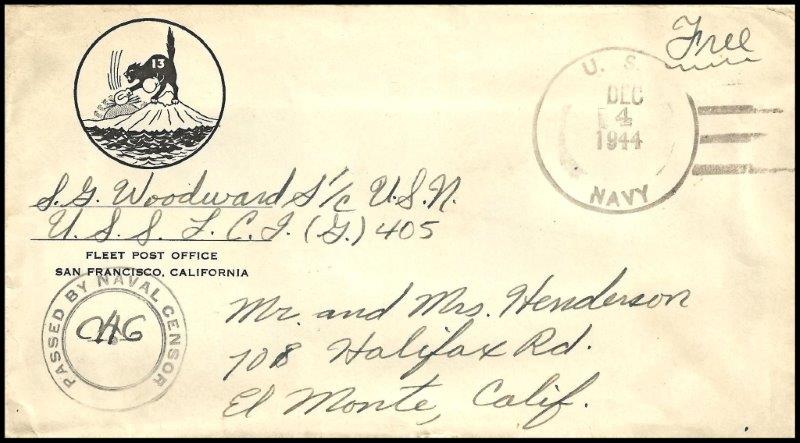 Free
13
U. S.
DEC
4
1944
NAVY
S. G. Woodward S 1/c U.S.N.
U. S. S. L. C. I. (G.) 405
FLEET POST OFFICE
SAN FRANCISCO, CALIFORNIA
PASSED BY NAVAL CENSOR
Mr. and Mrs. Henderson
708 Halifax Rd.
El Monte, Calif.